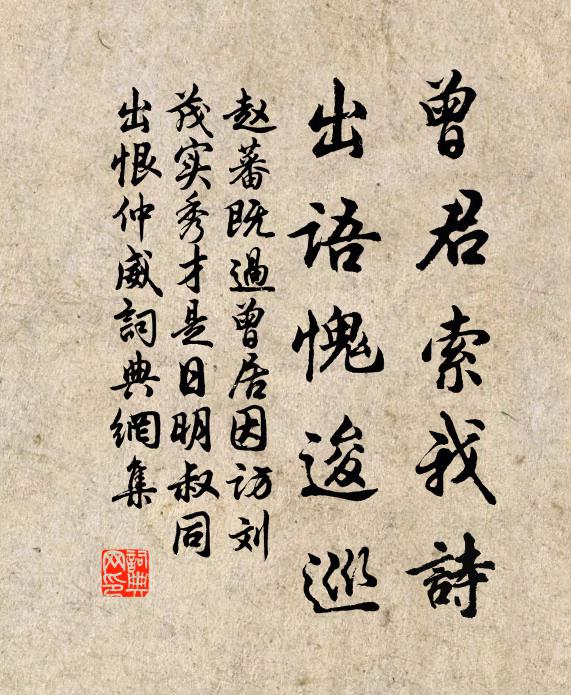 曾君索我詩
出語愧逡巡
赵蕃既過曾居因访刘
茂实秀才是日明叔同
出恨仲威詞典網集
詞典
网印